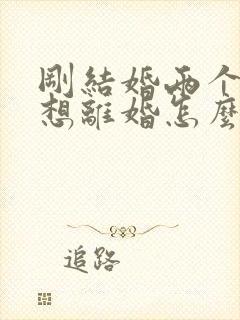 剛結婚兩个
想離婚怎麼
追路